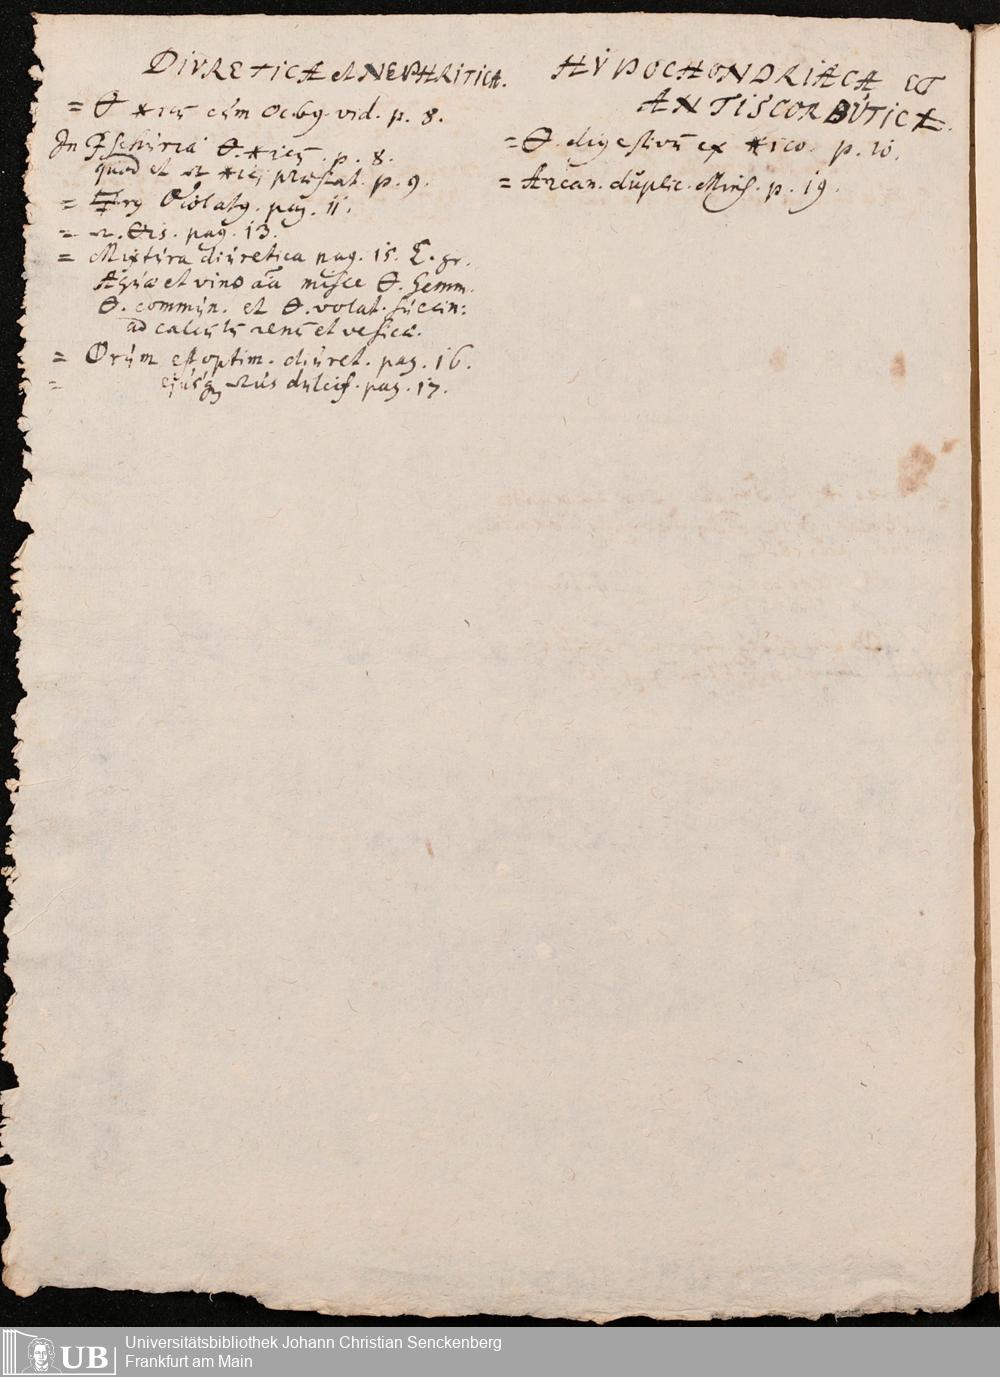 DIVRETICA et NEPHRITICA.
= 🜔 ✶icū cum vid. p. 8.
In Ischuria 🜔. ✶icū. p. 8.
quod et ✶ici præstat. p. 9.
= pag. 11.
= pag. 13.
= Mixtura diuretica pag. 15. E. gr.
Aquæ et vino aā misce 🜔. Gemm.
🜔. commun. et 🜔. volat. succin:
ad calculū renū et vesicæ.
= est optim. diuret. pag. 16.
= ejusq dulcis. pag. 17.
HYPOCHONDRIACA ET
ANTISCORBUTICA.
= 🜔. digestivū ex ✶ico. p. 10.
= Arcan. duplic. Mins. p. 19.
UB
Universitätsbibliothek Johann Christian Senckenberg
Frankfurt am Main